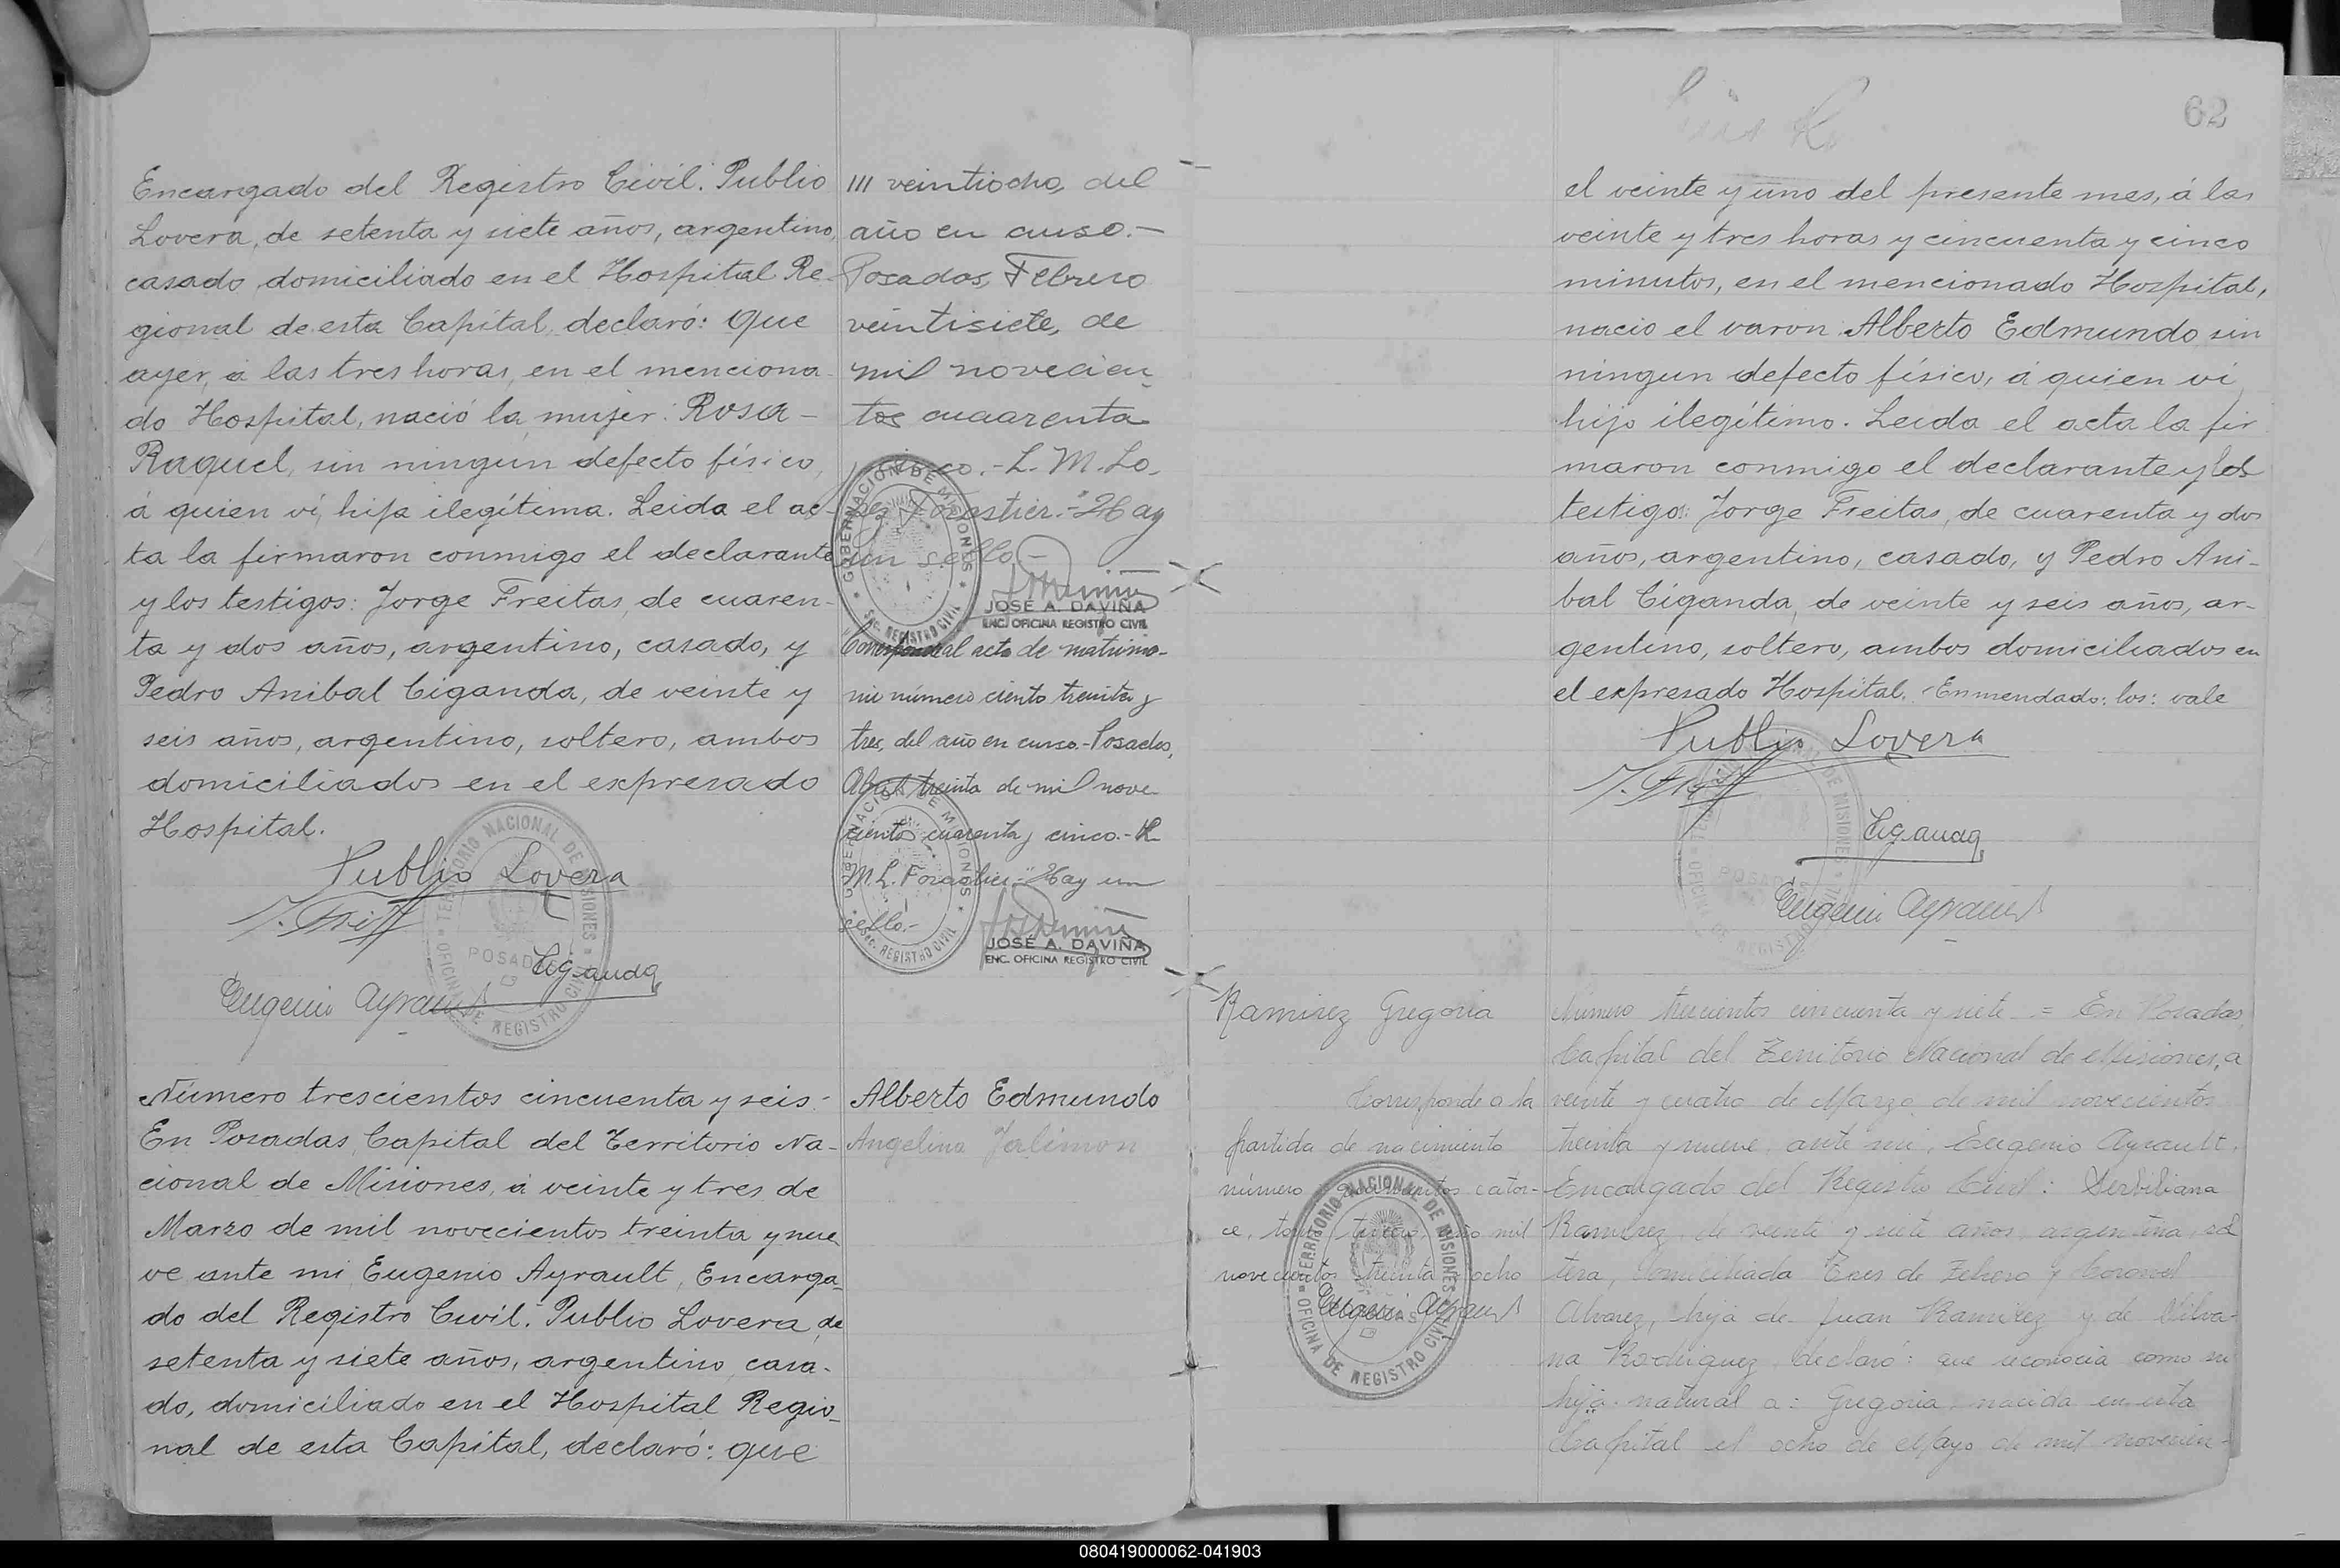 Encargado del Registro Civil. Publio
Lovera, de setenta y siete años, argentino,
casado, domiciliado en el Hospital Re-
gional de esta Capital, declaró: Que
ayer, á las tres horas, en el menciona-
do Hospital, nació la mujer: Rosa-
Raquel, sin ningún defecto físico,
á quien ví, hija ilegítima. Leida el ac-
ta la firmaron conmigo el declarante
y los testigos: Jorge Freitas, de cuaren-
ta y dos años, argentino, casado, y
Pedro Anibal Ciganda, de veinte y
seis años, argentino, soltero, ambos
domiciliados en el expresado
Hospital.
Publio Lovera
Ciganda
Eugenio Ayrault
TERRITORIO NACIONAL DE MISIONES
POSADAS
OFICINA DE REGISTRO CIVIL
Número trescientos cincuenta y seis.-
En Posadas, Capital del Territorio Na-
cional de Misiones, á veinte y tres de
Marzo de mil novecientos treinta y nue
ve ante mi Eugenio Ayrault, Encarga-
do del Registro Civil: Publio Lovera, de
setenta y siete años, argentino, casa-
do, domiciliado en el Hospital Regio-
nal de esta Capital, declaró: que
III veintiocho, del
año en curso.-
Posadas, Febrero
veintisiete, de
mil novecien
tos cuaarenta
y cinco.- L. M. Lo.
Forastier.- "Hay
un sello.-
GOBERNACIÓN DE MISIONES
Sec. REGISTRO CIVIL
JOSÉ A. DAVIÑA
ENC. OFICINA REGISTRO CIVIL
Corresponde al acta de matrimo-
nio número ciento treinta y
tres, del año en curso.- Posadas,
Abril treinta de mil nove-
cientos cuarenta y cinco.-
M. L. Forastier.- "Hay un
sello.-
GOBERNACIÓN DE MISIONES
Sec. REGISTRO CIVIL
JOSÉ A. DAVIÑA
ENC. OFICINA REGISTRO CIVIL
Alberto Edmundo
Angelino Jalimon
62
el veinte y uno del presente mes, á las
veinte y tres horas y cincuenta y cinco
minutos, en el mencionado Hospital,
nacio el varon: Alberto Edmundo, sin
ningun defecto físico, á quien vi
hijo ilegítimo. Leida el acta la fir
maron conmigo el declarante y los
testigos: Jorge Freitas, de cuarenta y dos
años, argentino, casado, y Pedro Ani-
bal Ciganda, de veinte y seis años, ar-
gentino, soltero, ambos domiciliados en
el expresado Hospital. -Enmendado: los: vale
Publio Lovera
Ciganda
Eugenio Ayrault
Ramirez Gregoria
Corresponde a la
partida de nacimiento
número cuatrocientos cator-
ce, tomo tercero, año mil
novecientos treinta y ocho
Eugenio Ayrault
TERRITORIO NACIONAL DE MISIONES
OFICINA DE REGISTRO CIVIL
Número trescientos cincuenta y siete = En Posadas,
Capital del Territorio Nacional de Misiones, a
veinte y cuatro de Marzo de mil novecientos
treinta y nueve, ante mi, Eugenio Ayrault,
Encargado del Registro Civil: Serbiliana
Ramirez, de veinte y siete años, argentina, sol
tera, domiciliada Tres de Febrero y Coronel
Alvarez, hija de Juan Ramirez y de Silva-
na Rodriguez, declaró: que reconocia como su
hija natural a: Gregoria, nacida en esta
Capital el ocho de Mayo de mil novecien-
080419000062-041903